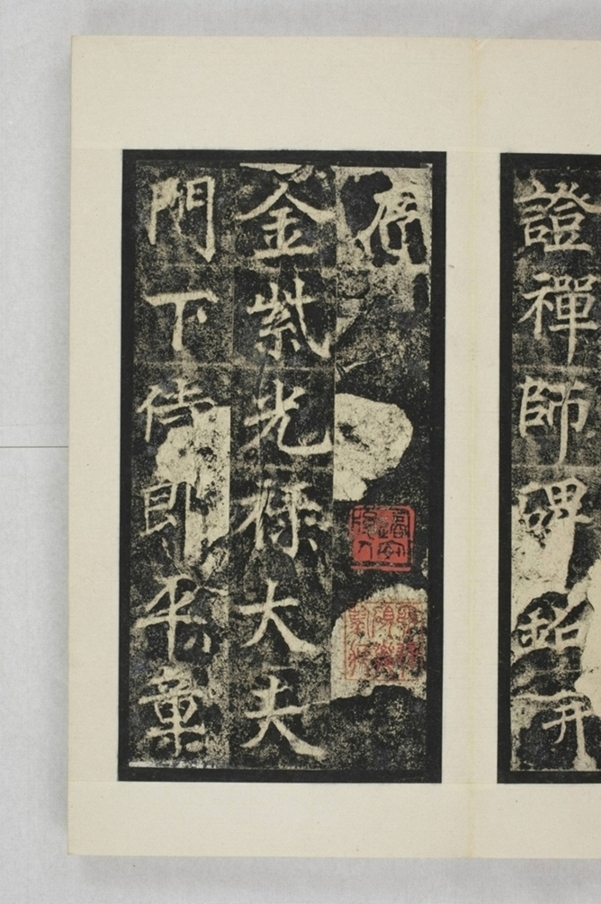 證禪師碑銘并
序
金紫光祿大夫
門下侍郎平章